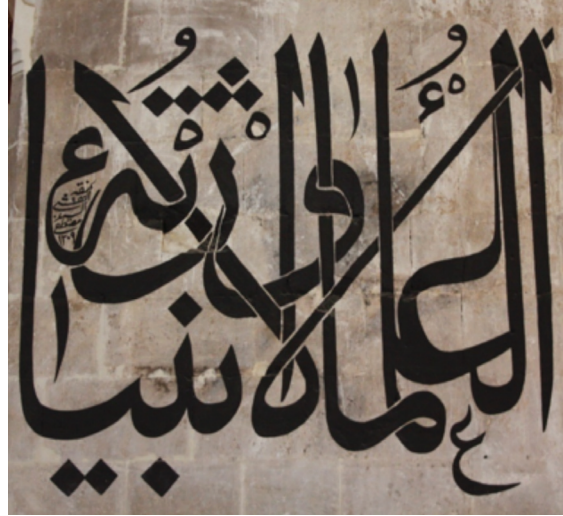 العلماء ورثة الانبياء